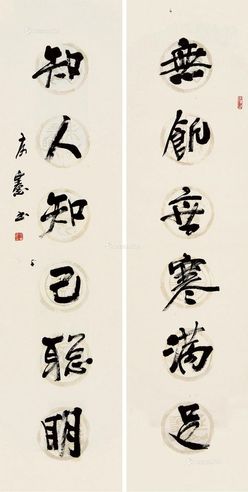 無飢無寒滿足
知人知己聰明